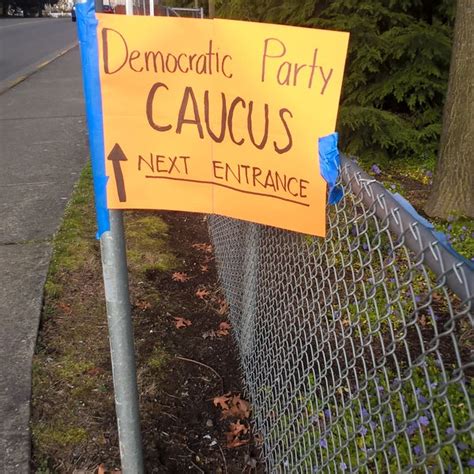 Democratic Party
CAUCUS
NEXT ENTRANCE